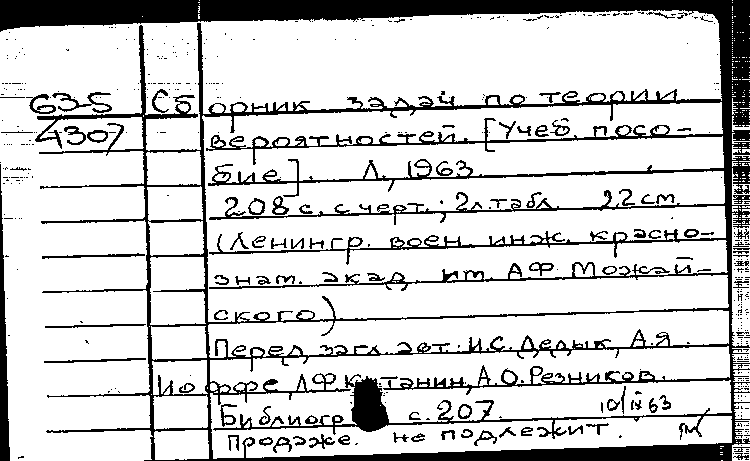 63-5 Сборник задач по теории
4307 вероятностей. [Учеб. посо-
бие]. Л., 1963.
208 с. с черт.; 2 л. табл. 22 см.
(Ленингр. воен. инж. красно-
знам. акад. им. А.Ф. Можай-
ского)
Перед загл. авт.: И.С. Дедык, А.Я.
Иоффе, Л.Ф. К танин, А.О. Резников.
Библиогр с. 207. 10/IX 63
Продаже не подлежит.